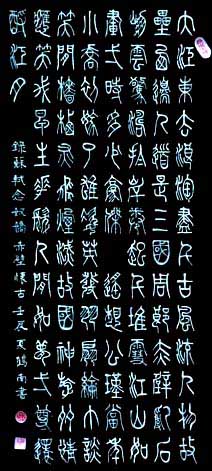 大江東去浪淘盡千古風流人物故
壘西邊人道是三國周郎赤壁亂石
驚濤岸起千堆雪江山如
畫弌時多少豪傑遙想公瑾當年
小喬初嫁了雄姿英發羽扇綸巾談
笑間檣櫓灰飛煙滅故國神遊
應笑我早生華髮人間如夢弌尊還
酹江月
錄蘇軾念奴嬌赤壁懷古壬辰夏鶴南書